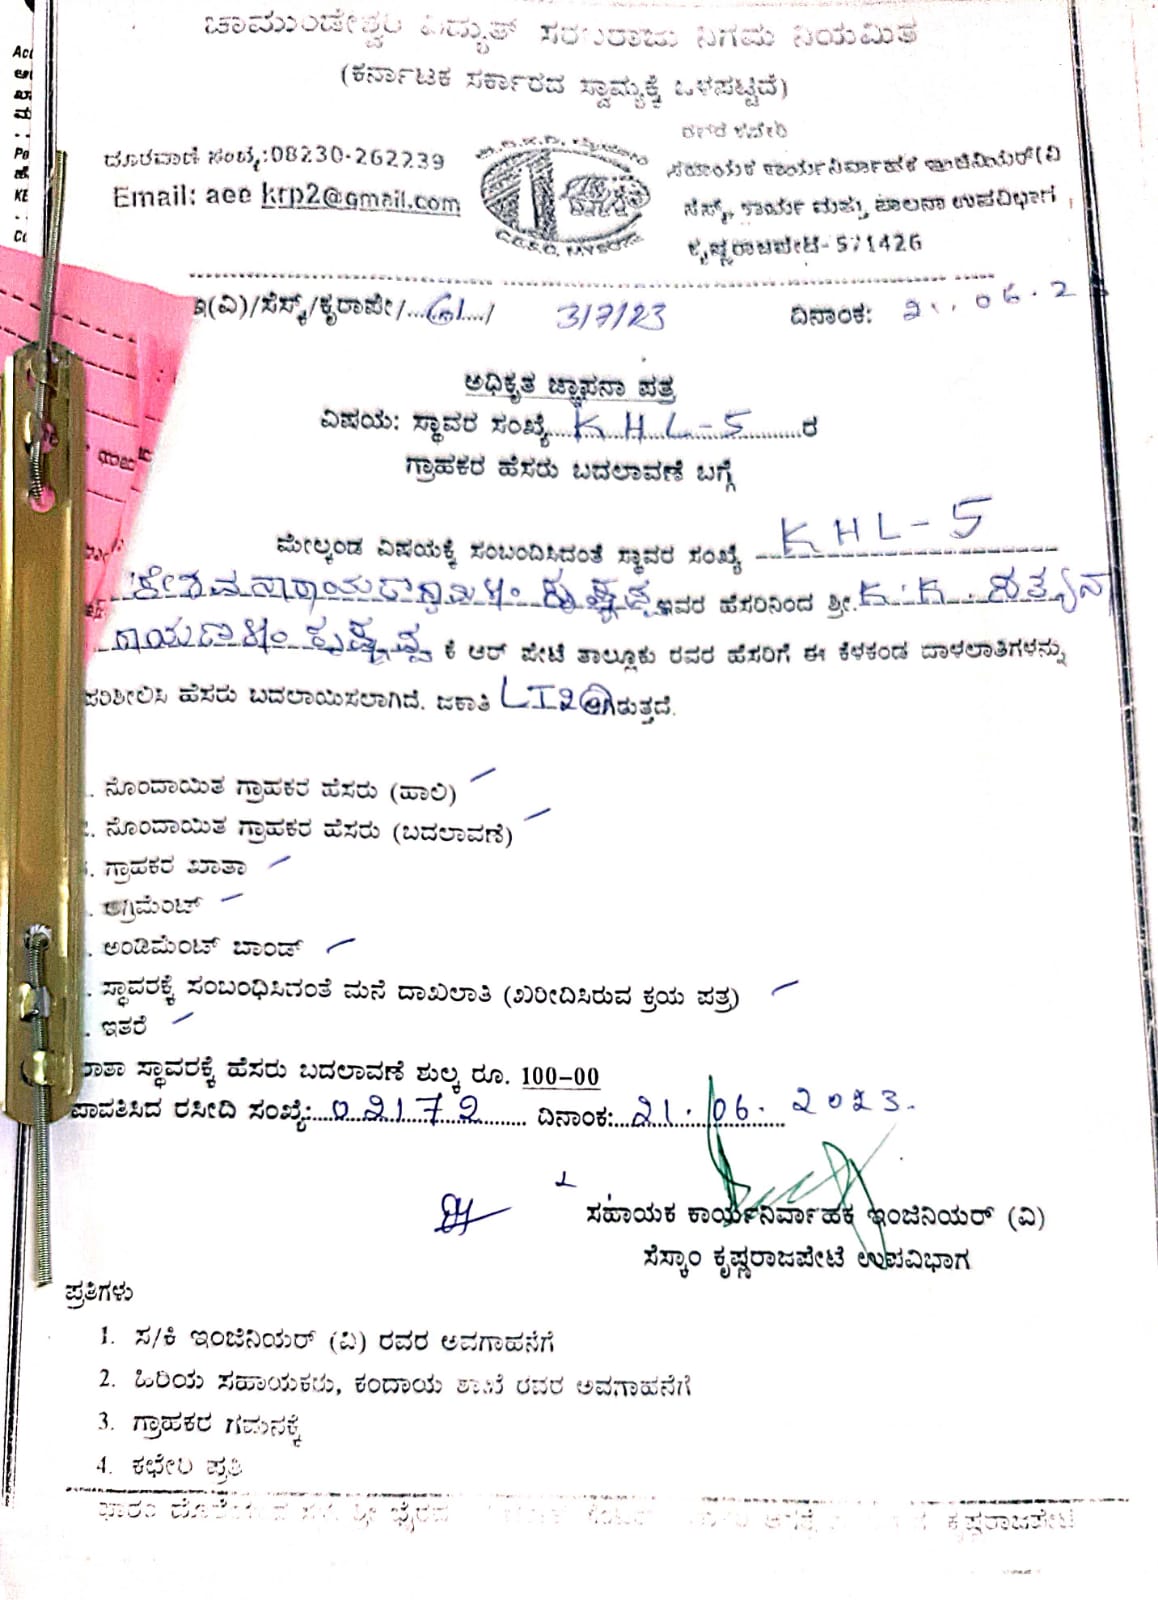 ಚಾಮುಂಡೇಶ್ವರಿ ವಿದ್ಯುತ್ ಸರಬರಾಜು ನಿಗಮ ನಿಯಮಿತ
(ಕರ್ನಾಟಕ ಸರ್ಕಾರದ ಸ್ವಾಮ್ಯಕ್ಕೆ ಒಳಪಟ್ಟಿದೆ)
ದೂರವಾಣಿ ಸಂಖ್ಯೆ:08230-262239
Email: aee krp2@gmail.com
C.E.S.C. MYSORE
ರವರ ಕಚೇರಿ
ಸಹಾಯಕ ಕಾರ್ಯನಿರ್ವಾಹಕ ಇಂಜಿನಿಯರ್(ವಿ
ಸೆಸ್ಕ್, ಕಾರ್ಯ ಮತ್ತು ಪಾಲನಾ ಉಪವಿಭಾಗ,
ಕೃಷ್ಣರಾಜಪೇಟೆ-571426
ಇ(ವಿ)/ಸೆಸ್ಕ್/ಕೃರಾಪೇ/ / 3/7/23 ದಿನಾಂಕ: 21.06.2
ಅಧಿಕೃತ ಜ್ಞಾಪನಾ ಪತ್ರ
ವಿಷಯ: ಸ್ಥಾವರ ಸಂಖ್ಯೆ KHL-5 ರ
ಗ್ರಾಹಕರ ಹೆಸರು ಬದಲಾವಣೆ ಬಗ್ಗೆ
ಮೇಲ್ಕಂಡ ವಿಷಯಕ್ಕೆ ಸಂಬಂದಿಸಿದಂತೆ ಸ್ಥಾವರ ಸಂಖ್ಯೆ KHL-5
ಇವರ ಹೆಸರಿನಿಂದ ಶ್ರೀ. K.K. ಸತ್ಯನಾ
ರಾಯಣ ಕೃಷ್ಣಪ್ಪ ಕೆ ಆರ್ ಪೇಟೆ ತಾಲ್ಲೂಕು ರವರ ಹೆಸರಿಗೆ ಈ ಕೆಳಕಂಡ ದಾಳಲಾತಿಗಳನ್ನು
ಪರಿಶೀಲಿಸಿ ಹೆಸರು ಬದಲಾಯಿಸಲಾಗಿದೆ. ಜಕಾತಿ LT2@ ಆಗಿರುತ್ತದೆ.
. ನೊಂದಾಯಿತ ಗ್ರಾಹಕರ ಹೆಸರು (ಹಾಲಿ)
. ನೊಂದಾಯಿತ ಗ್ರಾಹಕರ ಹೆಸರು (ಬದಲಾವಣೆ)
. ಗ್ರಾಹಕರ ಖಾತಾ
. ಅಗ್ರಿಮೆಂಟ್
. ಅಂಡಿಮೆಂಟ್ ಬಾಂಡ್
. ಸ್ಥಾವರಕ್ಕೆ ಸಂಬಂಧಿಸಿದಂತೆ ಮನೆ ದಾಖಲಾತಿ (ಖರೀದಿಸಿರುವ ಕ್ರಯ ಪತ್ರ)
. ಇತರೆ
ಸ್ಥಾವರಕ್ಕೆ ಹೆಸರು ಬದಲಾವಣೆ ಶುಲ್ಕ ರೂ. 100-00
ಪಾವತಿಸಿದ ರಸೀದಿ ಸಂಖ್ಯೆ: 02172 ದಿನಾಂಕ: 21.06.2023.
ಸಹಾಯಕ ಕಾರ್ಯನಿರ್ವಾಹಕ ಇಂಜಿನಿಯರ್ (ವಿ)
ಸೆಸ್ಕಾಂ ಕೃಷ್ಣರಾಜಪೇಟೆ ಉಪವಿಭಾಗ
ಪ್ರತಿಗಳು
1. ಸ/ಕಿ ಇಂಜಿನಿಯರ್ (ವಿ) ರವರ ಅವಗಾಹನೆಗೆ
2. ಹಿರಿಯ ಸಹಾಯಕರು, ಕಂದಾಯ ಶಾಖೆ ರವರ ಅವಗಾಹನೆಗೆ
3. ಗ್ರಾಹಕರ ಗಮನಕ್ಕೆ
4. ಕಛೇರಿ ಪ್ರತಿ
ಕೃಷ್ಣರಾಜಪೇಟೆ